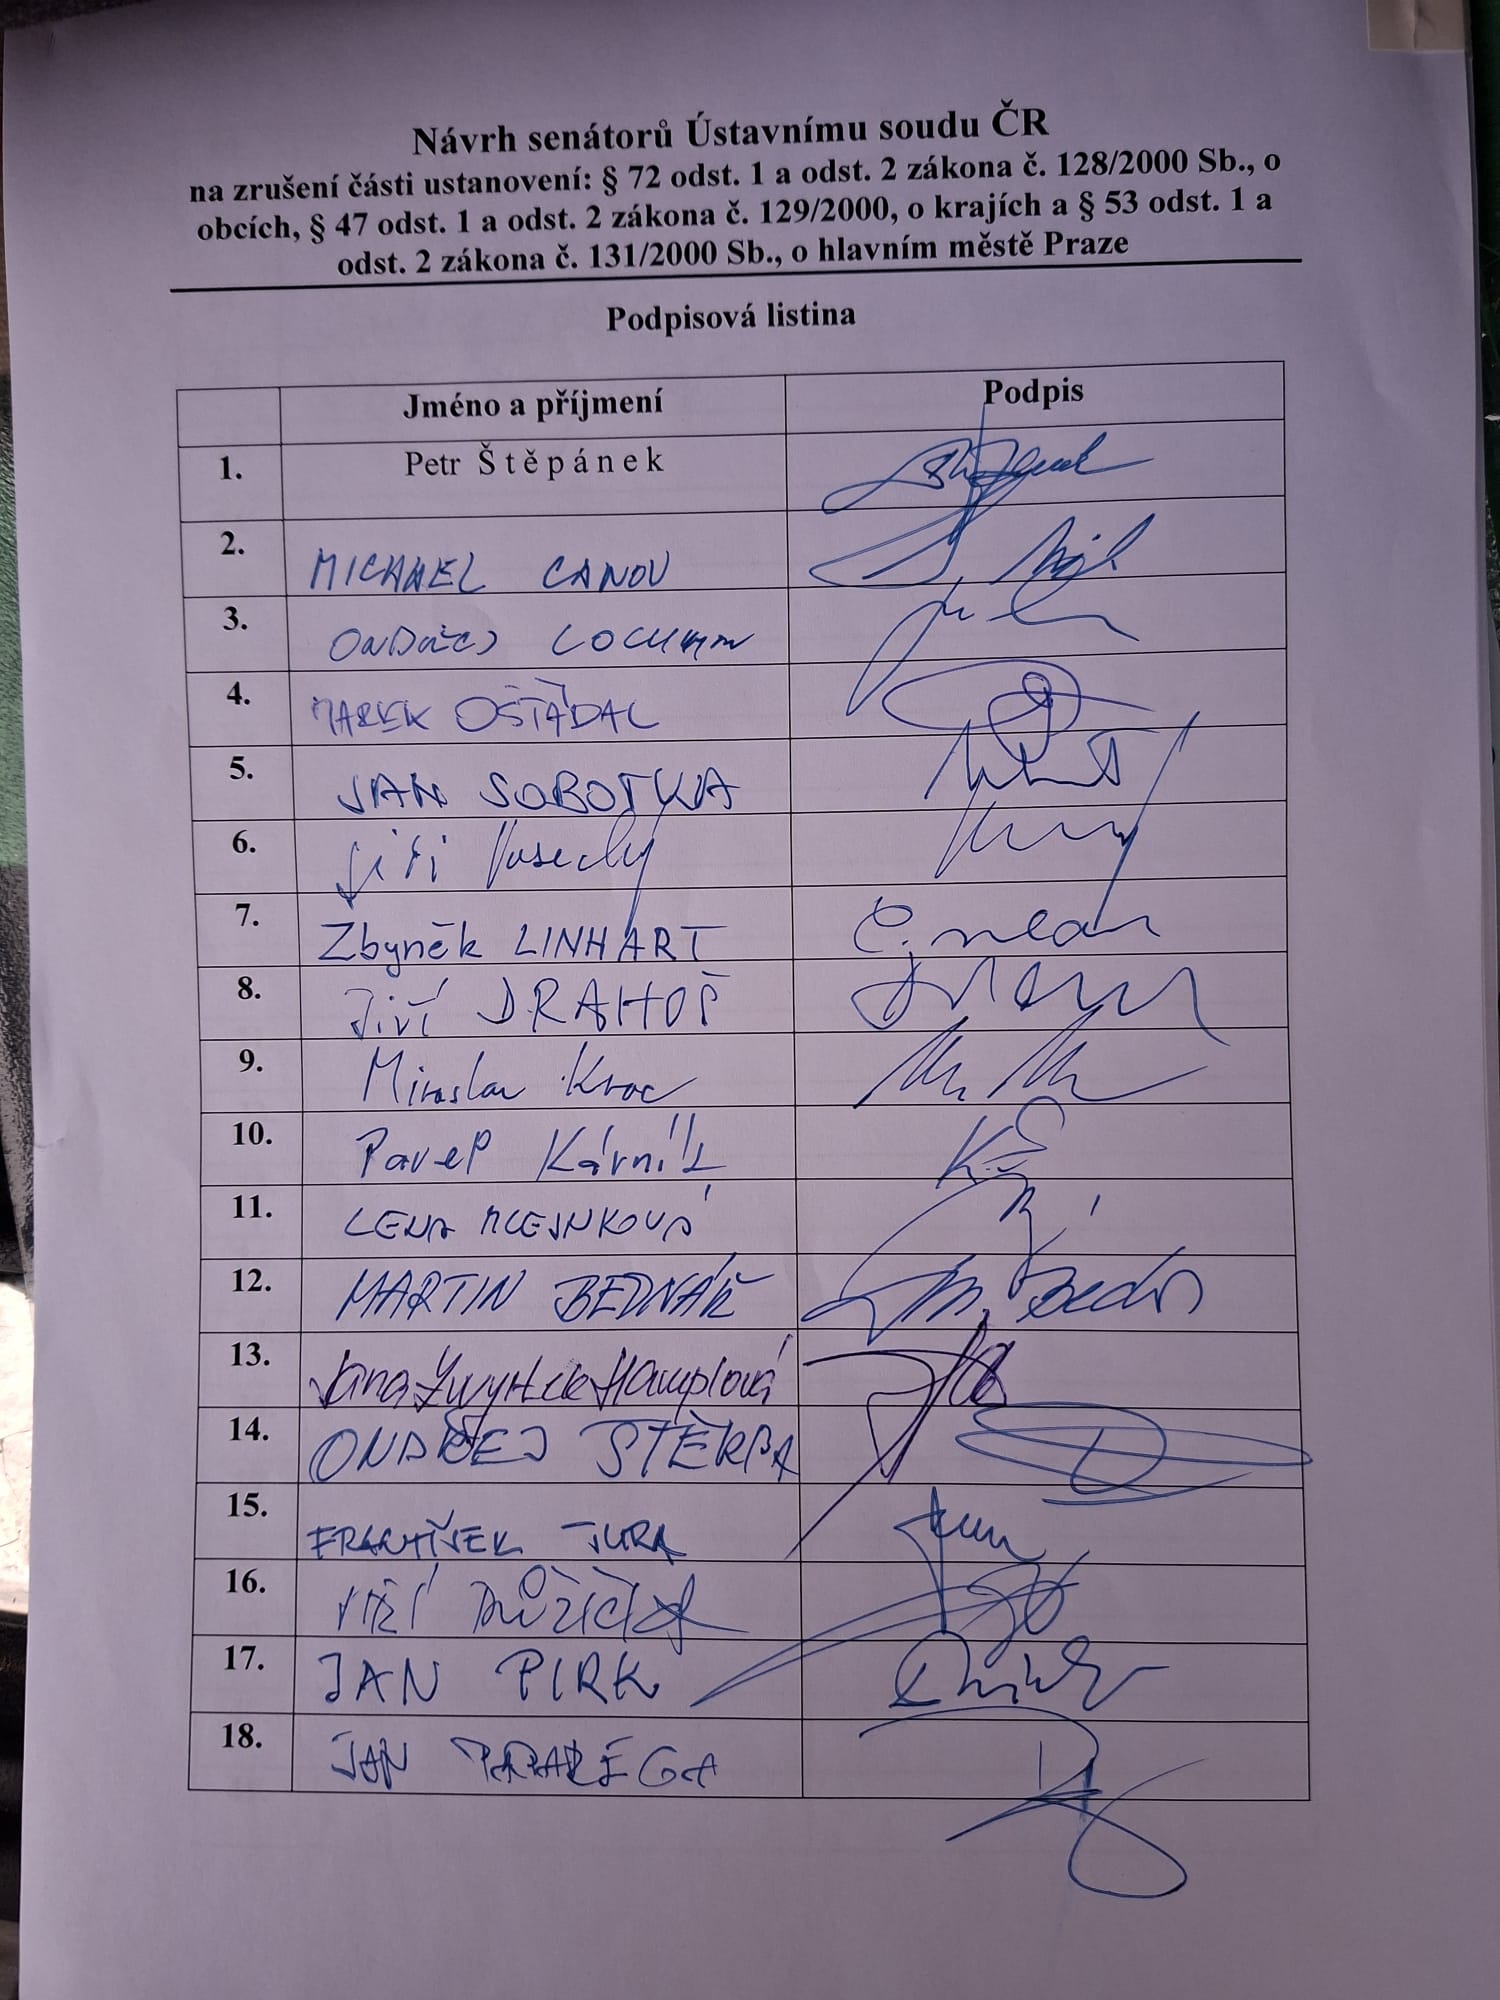 Návrh senátorů Ústavnímu soudu ČR
na zrušení části ustanovení: § 72 odst. 1 a odst. 2 zákona č. 128/2000 Sb., o
obcích, § 47 odst. 1 a odst. 2 zákona č. 129/2000, o krajích a § 53 odst. 1 a
odst. 2 zákona č. 131/2000 Sb., o hlavním městě Praze
Podpisová listina
Jméno a příjmení Podpis
1. Petr Štěpánek
2. MICHAEL CANOV
3. ONDŘEJ LOCHMAN
4. MAREK OŠŤÁDAL
5. JAN SOBOTKA
6. Jiří Vosecký
7. Zbyněk LINHART
8. Jiří DRAHOŠ
9. Miroslav Kroc
10. Pavel Kárník
11. LENA MLEJNKOVÁ
12. MARTIN BEDNÁŘ
13. Jana Zwyrtek Hamplová
14. ONDŘEJ ŠTĚRBA
15. FRANTIŠEK JURA
16. JIŘÍ RŮŽIČKA
17. JAN PIRK
18. JAN